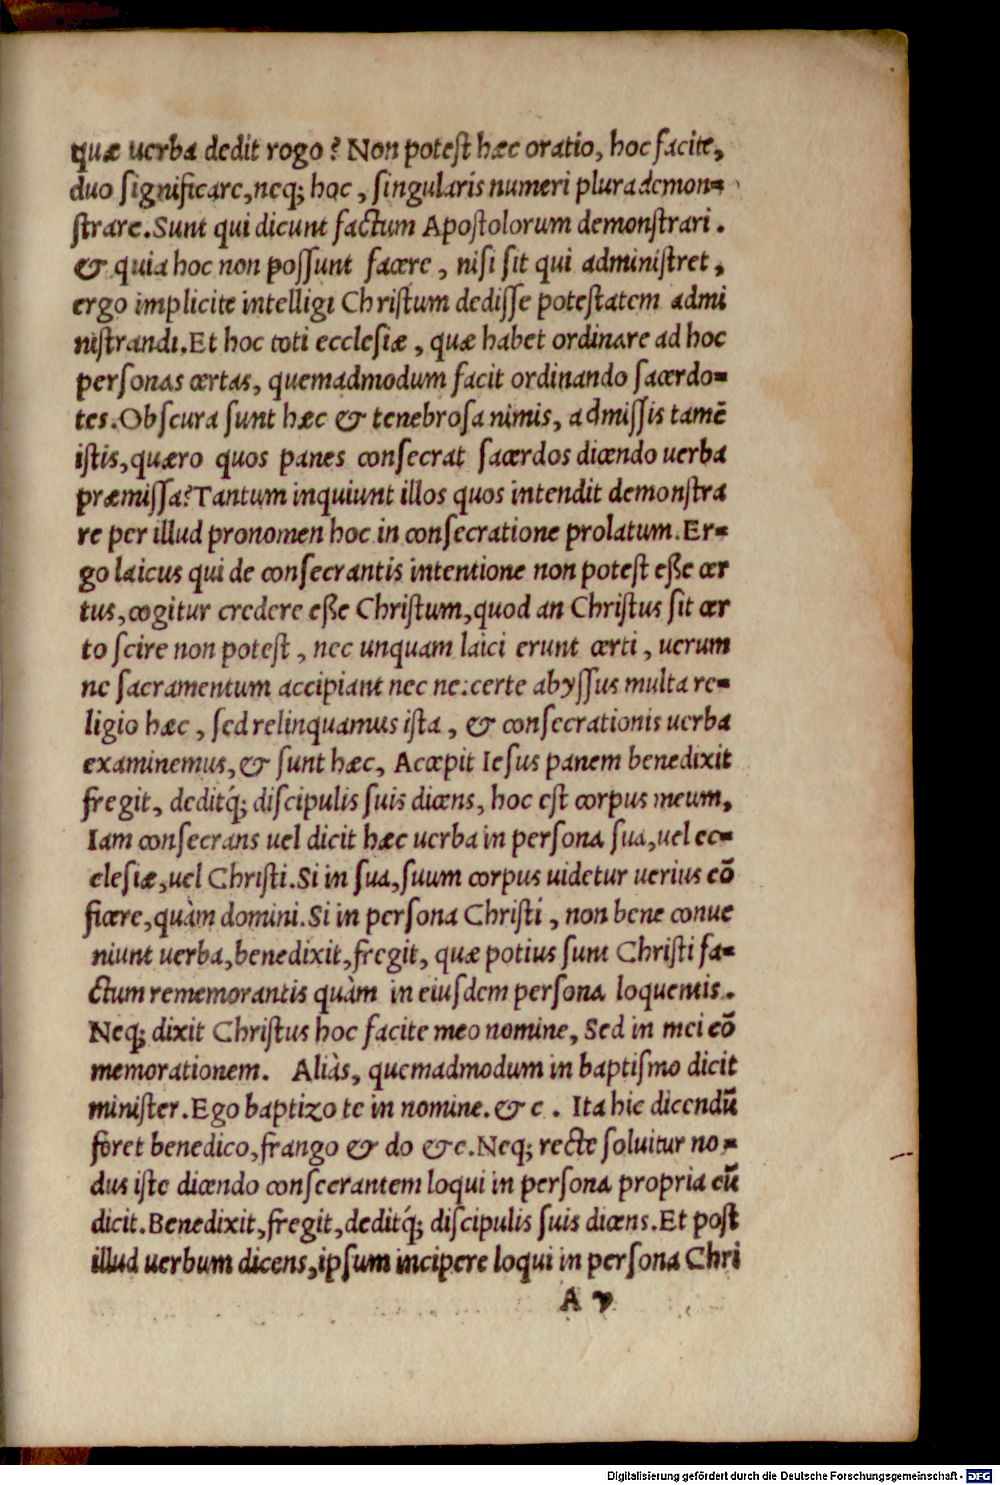 quæ uerba dedit rogo? Non potest hæc oratio, hoc facite,
duo significare, neq; hoc, singularis numeri plura demon-
strare. Sunt qui dicunt factum Apostolorum demonstrari.
& quia hoc non possunt facere, nisi sit qui administret,
ergo implicite intelligi Christum dedisse potestatem admi
nistrandi. Et hoc toti ecclesiæ, quæ habet ordinare ad hoc
personas certas, quemadmodum facit ordinando sacerdo-
tes. Obscura sunt hæc & tenebrosa nimis, admissis tamē
istis, quæro quos panes consecrat sacerdos dicendo uerba
præmissa? Tantum inquiunt illos quos intendit demonstra
re per illud pronomen hoc in consecratione prolatum. Er-
go laicus qui de consecrantis intentione non potest eße cer
tus, cogitur credere eße Christum, quod an Christus sit cer
to scire non potest, nec unquam laici erunt certi, uerum
ne sacramentum accipiant nec ne. certe abyssus multa re-
ligio hæc, sed relinquamus ista, & consecrationis uerba
examinemus, & sunt hæc, Accepit Iesus panem benedixit
fregit, deditq́; discipulis suis dicens, hoc est corpus meum,
Iam consecrans uel dicit hæc uerba in persona sua, uel ec-
clesiæ, uel Christi. Si in sua, suum corpus uidetur uerius cō
ficere, quàm domini. Si in persona Christi, non bene conue
niunt uerba, benedixit, fregit, quæ potius sunt Christi fa-
ctum rememorantis quàm in eiusdem persona loquentis.
Neq; dixit Christus hoc facite meo nomine, Sed in mei cō
memorationem. Aliàs, quemadmodum in baptismo dicit
minister. Ego baptizo te in nomine. &c. Ita hic dicendū
foret benedico, frango & do &c. Neq; recte soluitur no-
dus iste dicendo consecrantem loqui in persona propria cū
dicit. Benedixit, fregit, deditq́; discipulis suis dicens. Et post
illud uerbum dicens, ipsum incipere loqui in persona Chri
A v
Digitalisierung gefördert durch die Deutsche Forschungsgemeinschaft - DFG